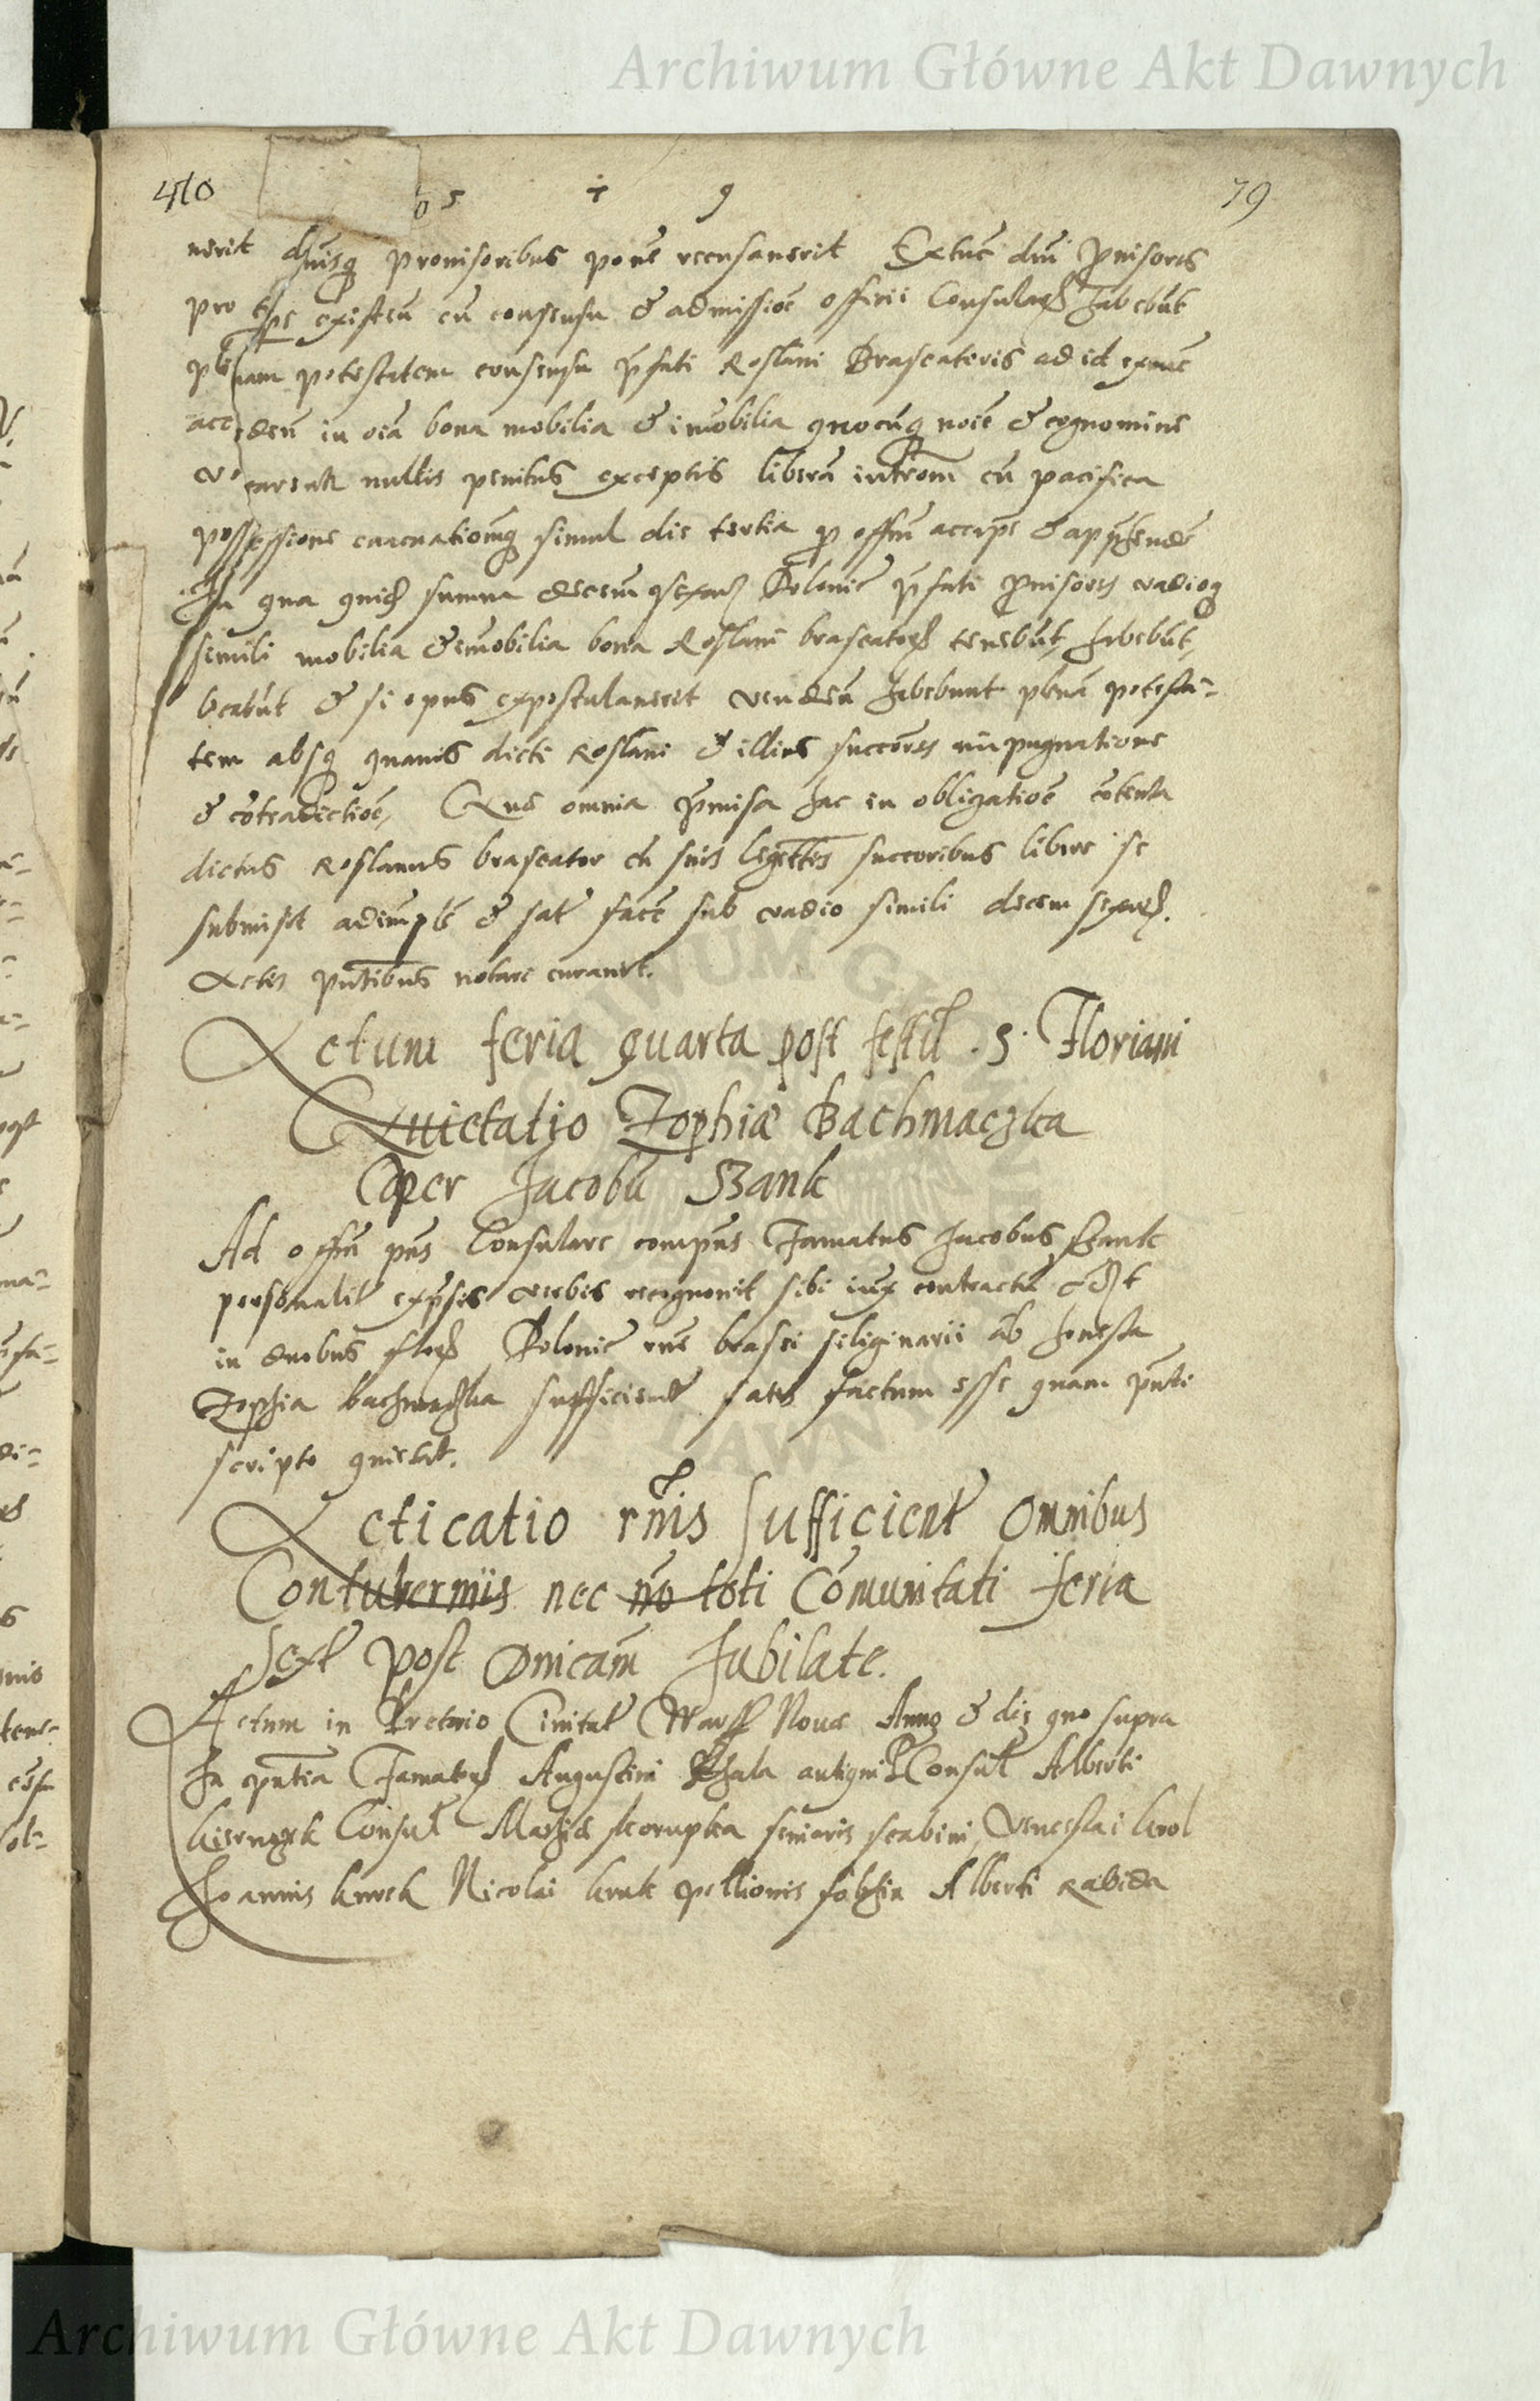 Archiwum Główne Akt Dawnych
470 5 1 9 79
nerit dnisq prouisoribus pone recusauerit Extuc dni prouisores
pro tpe existen cu consensu & admissioe officii Consularis habebut
plenam potestatem consensu pfati Roslani Braseatoris ad id exnuc
acceden in oia bona mobilia & imobilia quocuq noie & cognomine
vocarentur nullis penitus exceptis libera intromi cu pacifica
possessione euacuationeq simul die tertia p offm accipe & apphende
In qua quid summa decem sexag Polonic pfati prouisores vadioq
simili mobilia & imobilia bona Roslani braseatoris tenebut, habebut,
vtatut & si opus expostulauerit venden habebunt plena potesta-
tem absq quauis dicti Roslani & illius succores impugnatione
& cotradictioe, Que omnia pmissa hac in obligatioe cotenta
dictus Roslanus braseator cu suis legittis succoribus libere se
submisit adimple & satis face sub vadio simili decem sexag.
Actis pntibus notare curauit.
Actum feria quarta post festu . S. Floriani
Quictatio Zophiæ Bachmaczka
per Jacobu Szank
Ad offm pns Consulare compns Famatus Jacobus Szank
personalit expssis verbis recognouit sibi iux contractu
in duobus flor Polonic rne brasei siliginarii ab honesta
Zophia bachmaczka sufficient satis factum esse quam pnti
scripto quictat.
Acticatio rnis sufficient omnibus
Contuberniis nec no toti Comunitati feria
sext post Dnicam Jubilate.
Actum in Pretorio Ciuitat Warss Noua Anno & die quo supra
In pntia Famator Augustini antiqui Consul Alberti
Consul Mathiæ skorupka senioris scabini, Venceslai krol
Joannis kurek Nicolai kruk pellionis Alberti
Archiwum Główne Akt Dawnych